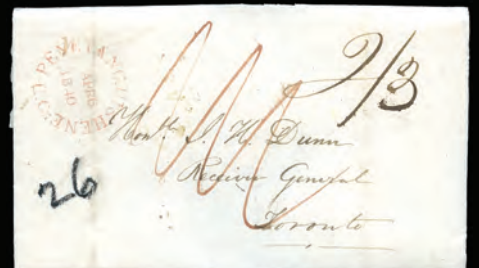 PENETANGUISHENE
1840
2/3
Honble J. H. Dunn
Receiver General
Toronto
26